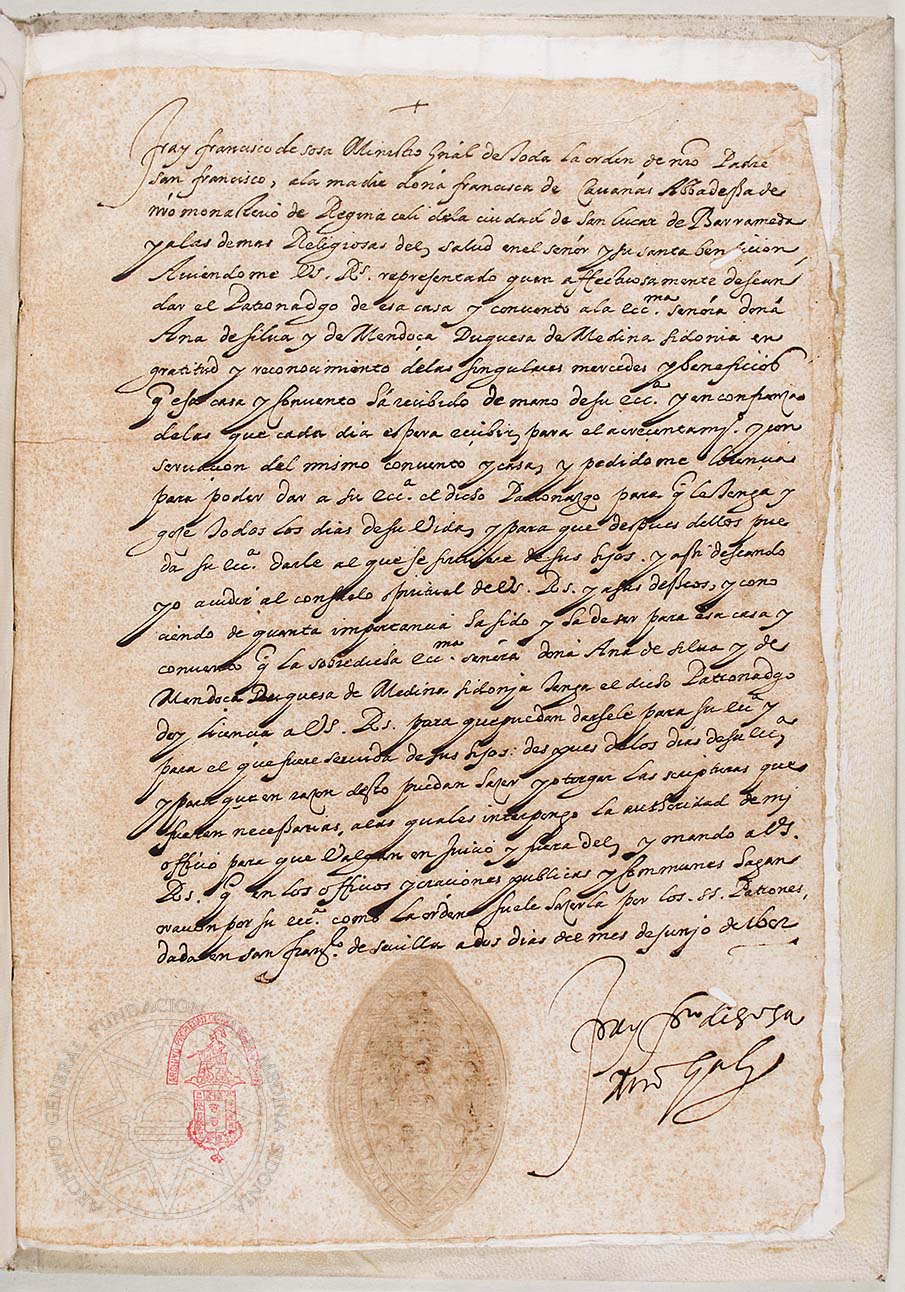 +
fray francisco de sosa Ministro Gnãl de toda la orden de nrõ Padre
san francisco, a la madre doña francisca de Cavañas Abbadessa de
nrõ monasterio de Regina celi de la ciudad de San lucar de Barrameda
y a las demas Religiosas del, salud en el señor y su santa bendicion,
Aviendome Vs. Rs. representado quan affectuosamente dessean
dar el Patronadgo de esa casa y convento a la ecc.ma señora doña
Ana de silva y de Mendoça Duquesa de Medina sidonia en
gratitud y reconocimiento de las singulares mercedes y beneficios
q̃ esa casa y convento hã recibido de mano de su ecc.a y en confianza
de las que cada dia espera recibir, para el acrecentamj.o y con
servacion del mismo convento y casa, y pedidome licencia
para poder dar a su ecc.a el dicho Patronazgo para q̃ le tenga y
goze todos los dias de su vida, y para que despues dellos pue
da su ecc.a darle al que se sirviere de sus hijos. y assi desseando
yo acudir al consuelo spiritual de Vs. Rs. y a sus desseos, y cono
ciendo de quanta importancia ha sido y ha de ser para esa casa y
convento q̃ la sobredicha ecc.ma señora doña Ana de silva y de
Mendoça Duquesa de Medina sidonja tenga el dicho Patronadgo
doy licencia a Vs. Rs. para que puedan darsele para su ecc.a y
para el que fuere servida de sus hijos: despues de los dias de su ecc.a,
y para que en razon desto puedan hazer y otorgar las scripturas que
fueren necessarias, a las quales interpongo la authoridad de mj
officio para que valgan en juicio y fuera del, y mando a Vs.
Rs. q̃ en los officios y oraciones publicas y communes hagan
oracion por su ecc.a como la orden suele hazerla por los. ss. Patrones,
dada en san fran.co de sevilla a dos dias del mes de junjo de 1602
fray fr.co de sosa
ARCHIVO GENERAL FUNDACION MEDINA SIDONIA